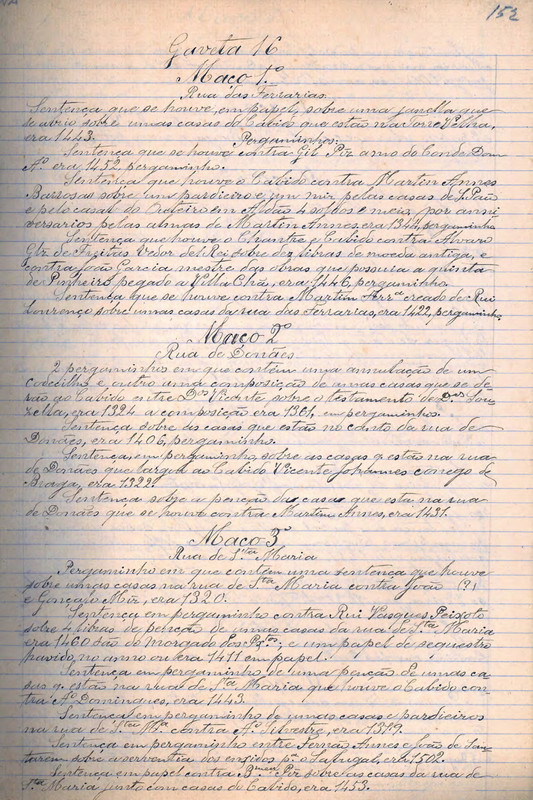 152
Gaveta 16
Maço 1.º
Rua das Ferrarias
Sentença que se houve, em papel, sobre uma janella que
se abrio sobre umas casas do Cabido que estão na Torre Velha,
era 1443.
Pergaminhos.
Sentença que se houve contra Gil Piz amo do Conde Dom
A.º era 1452 pergaminho.
Sentença que houve o Cabido contra Martim Annes
Barbosas sobre um pardieiro e um mir, pelas casas de
e pelo casal do Outeiro em 4 soldos e meio, por anni
versarios pelas almas de Martim Annes, era 1344, pergaminho
Sentença que houve o Chantre e Cabido contra Alvaro
Glz. de Freitas Vedor del Rei sobre dez libras de moeda antiga, e
contra João Garcia, mestre das obras que possuia a quinta
de Pinheiro pegado a Villa Chã, era 1446, pergaminho.
Sentença que se houve contra Martim Frr.ª creado de Rui
Lourenço sobre umas casas da rua das Ferrarias, era 1422, pergaminho.
Maço 2.º
Rua de Donães
2 pergaminhos em que contem uma annulação de um
codecilho e outro uma composição de umas casas que se de
rão ao Cabido entre D.os Vicente sobre o testamento de D.os Lou
zella, era 1324 a composição era 1361, em pergaminho.
Sentença sobre as casas que estão no canto da rua de
Donães, era 1406, pergaminho.
Sentença, em pergaminho, sobre as casas q. estão na rua
de Donães que largou ao Cabido Vicente Johannes conego de
Braga, era 1322.
Sentença sobre a penção das casas que esta na rua
de Donães que se houve contra Martim Annes, era 1431.
Maço 3.º
Rua de S.ta Maria
Pergaminho em que contem uma sentença que houve
sobre umas casas na rua de S.ta Maria contra João (?)
e Gonçalo Miz, era 1320.
Sentença em pergaminho contra Rui Vasques Peixoto
sobre 4 libras de penção de umas casas da rua de S.ta Maria
era 1460 são do Morgado dos P.xtos; e um papel de sequestro
havido no anno ou era 1411 em papel.
Sentença em pergaminho de uma penção de umas ca
sas q. estão na rua de S.ta Maria que houve o Cabido con
tra A.º Domingues, era 1443.
Sentença em pergaminho de umas casas e pardieiros
na rua de S.ta M.ª contra A.º Silvestre, era 1379.
Sentença em pergaminho entre Fernão Annes e João de San
tarem sobre a serventia dos enxidos p.ª o Sabugal, era 1502.
Sentença em papel contra B.meu Piz sobre as casas da rua de
S.ta Maria junto com casas do Cabido, era 1453.